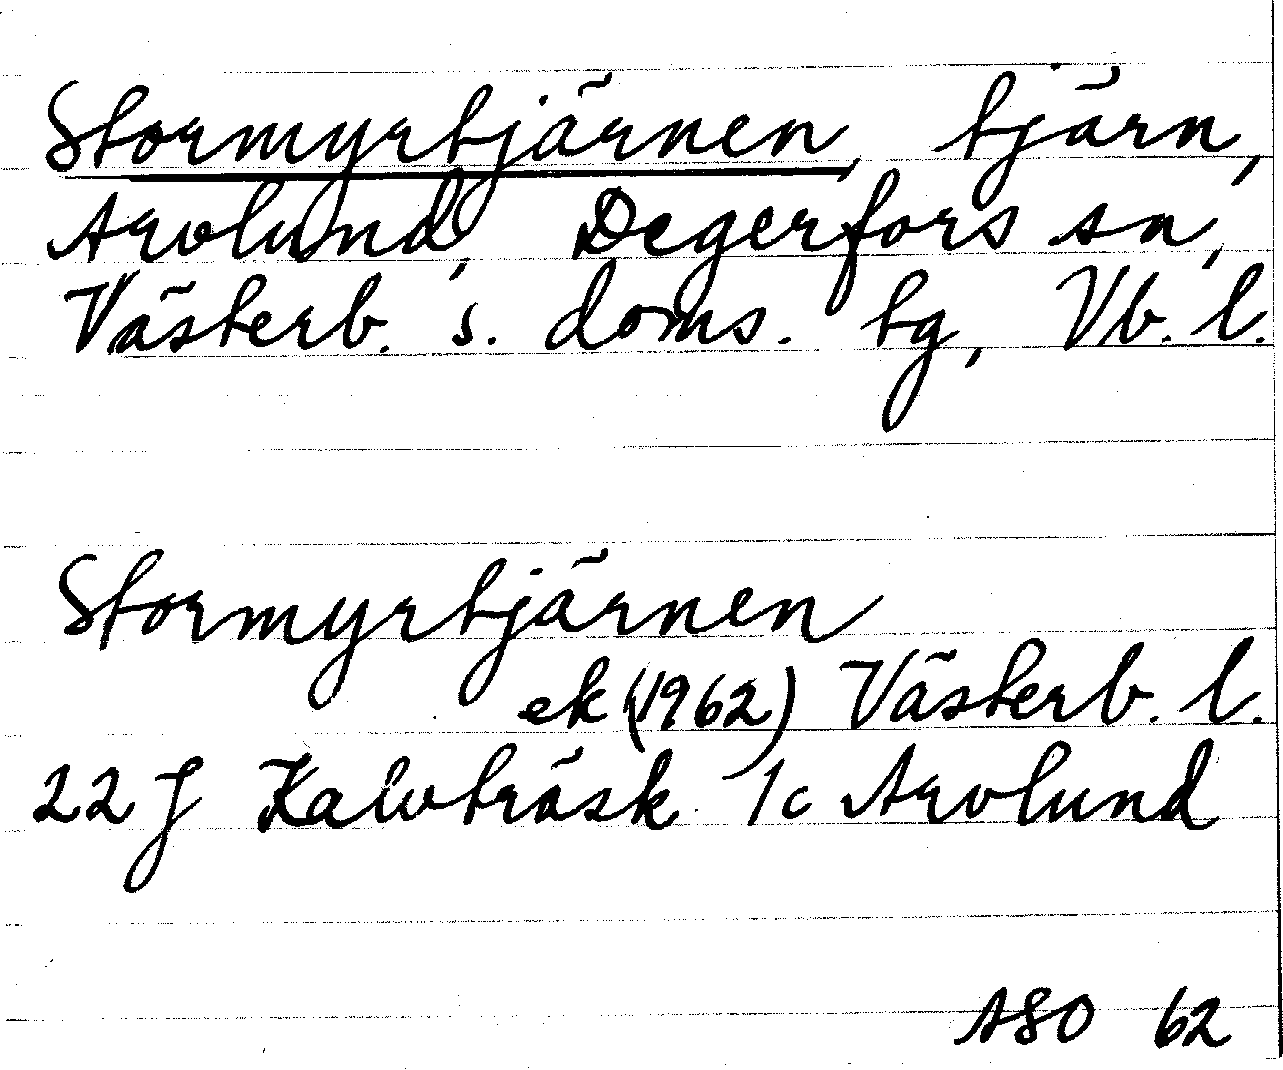 Stormyrtjärnen, tjärn,
Arvlund, Degerfors sn,
Västerb. s. doms. tg, Vb. l.
Stormyrtjärnen
ek (1962) Västerb. l.
22 J Kalvträsk 1c Arvlund
ASO 62